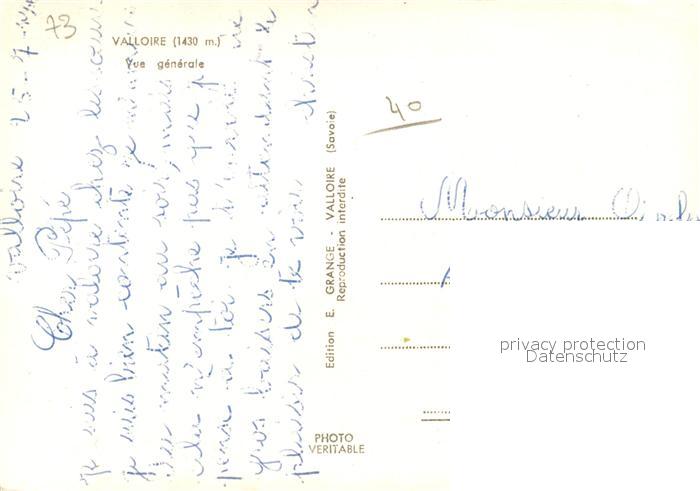 73
VALLOIRE (1430 m.)
Vue générale
Valloire 25-7-
Cher Pépé
Je suis à valoire chez les sœurs
Je suis bien contente je m'amuse
du matin au soir, mais
cela n'empêche pas que je
pense à toi. je t'envoie de
gros baisers en attendant le
plaisir de te voir
Edition E. GRANGE - VALLOIRE (Savoie)
Reproduction interdite
PHOTO
VERITABLE
40
Monsieur
privacy protection
Datenschutz